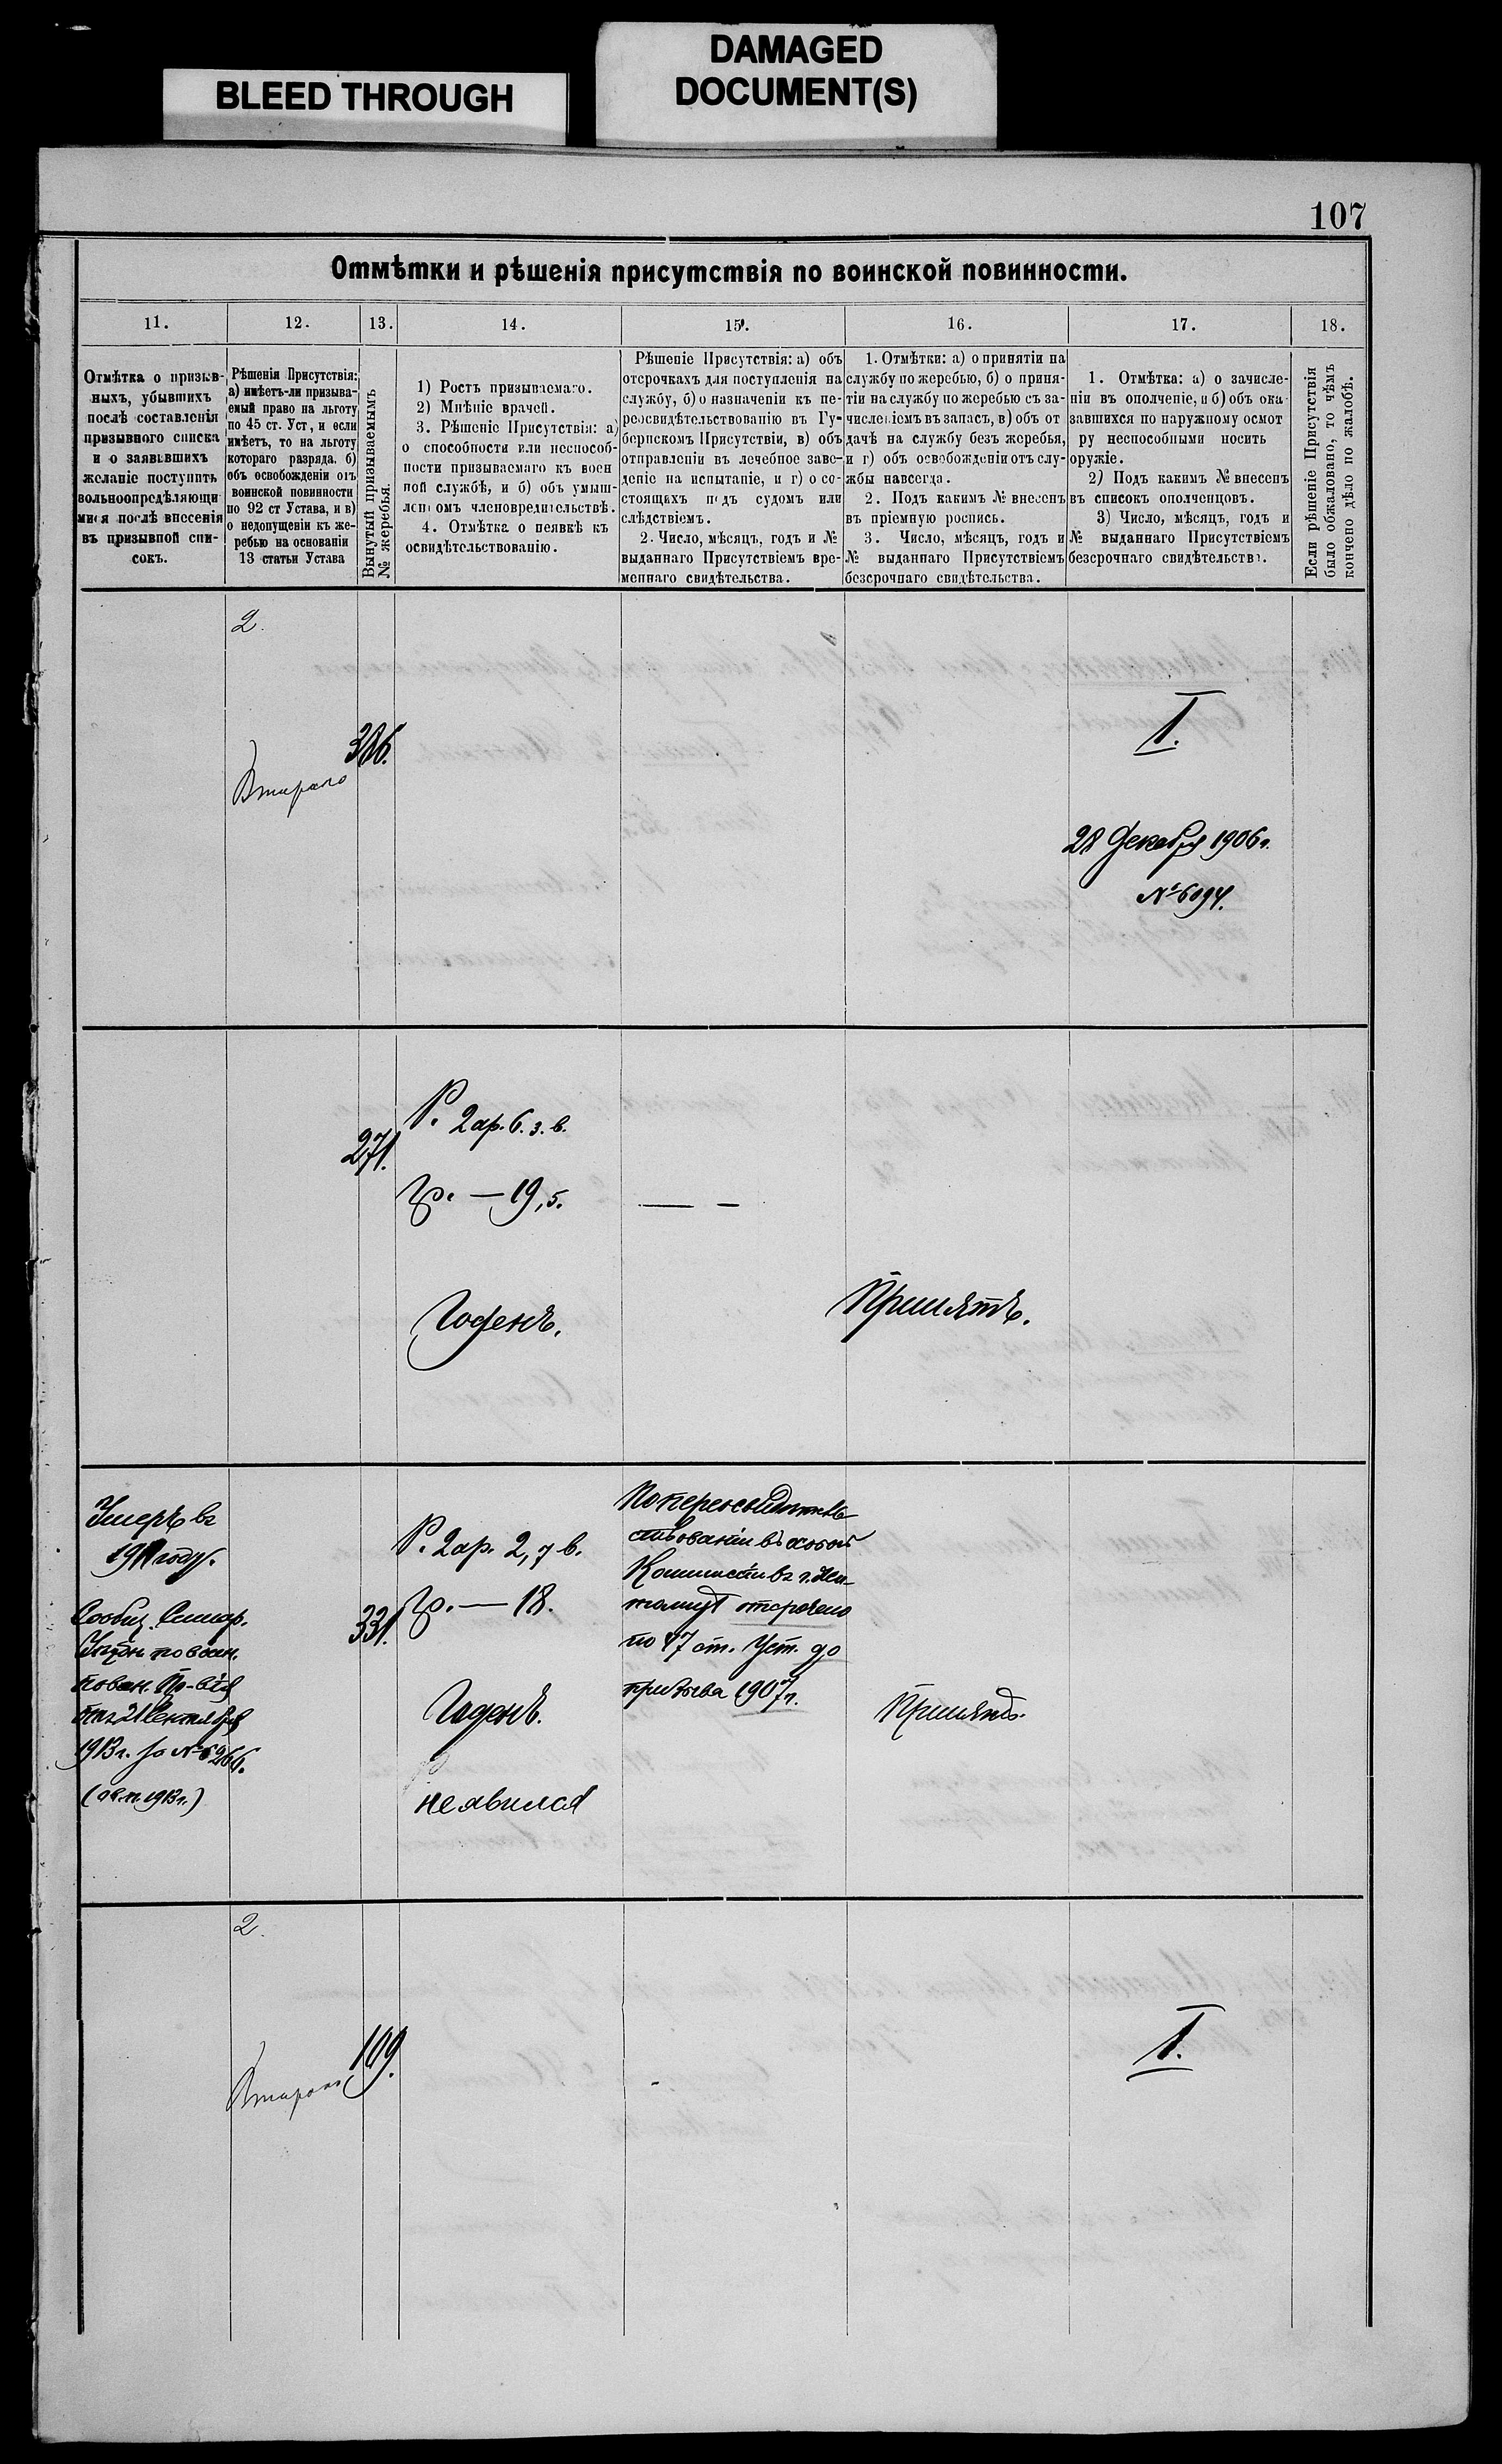 BLEED THROUGH
DAMAGED
DOCUMENT(S)
107
Отмѣтки и рѣшенія присутствія по воинской повинности.
11.
12.
13.
14.
15.
16.
17.
18.
Отмѣтка о призыв-
ныхъ, убывшихъ
послѣ составленія
призывного списка
и о заявившихъ
желаніе поступить
вольноопредѣляющи
мися послѣ внесенія
въ призывной спи-
сокъ.
Рѣшенія Присутствія:
а) имѣетъ-ли призыва-
емый право на льготу
по 45 ст. Уст, и если
имѣетъ, то на льготу
котораго разряда. б)
объ освобожденіи отъ
воинской повинности
по 92 ст Устава, и в)
о недопущеніи къ же-
ребью на основаніи
13 статьи Устава
Вынутый призываемымъ
№ жеребья.
1) Ростъ призываемаго.
2) Мнѣніе врачей.
3. Рѣшеніе Присутствія: а)
о способности или неспособ-
ности призываемаго къ воен
ной службѣ, и б) объ умыш-
леномъ членовредительствѣ.
4. Отмѣтка о неявкѣ къ
освидѣтельствованію.
Рѣшеніе Присутствія: а) объ
отсрочкахъ для поступленія на
службу, б) о назначеніи къ пе-
реосвидѣтельствованію въ Гу-
бернскомъ Присутствіи, в) объ
отправленіи въ лечебное заве-
деніе на испытаніе, и г) о со-
стоящихъ подъ судомъ или
слѣдствіемъ.
2. Число, мѣсяцъ, годъ и №
выданнаго Присутствіемъ вре-
меннаго свидѣтельства.
1. Отмѣтки: а) о принятіи на
службу по жеребью, б) о приня-
тіи на службу по жеребью съ за-
численіемъ въ запасъ, в) объ от
дачѣ на службу безъ жеребья,
и г) объ освобожденіи отъ слу-
жбы навсегда.
2. Подъ какимъ № внесенъ
въ пріемную роспись.
3. Число, мѣсяцъ, годъ и
№ выданнаго Присутствіемъ
безсрочнаго свидѣтельства.
1. Отмѣтка: а) о зачисле-
ніи въ ополченіе, и б) объ ока
завшихся по наружному осмот
ру неспособными носить
оружіе.
2) Подъ какимъ № внесенъ
въ списокъ ополченцовъ.
3) Число, мѣсяцъ, годъ и
№ выданнаго Присутствіемъ
безсрочнаго свидѣтельства.
Если рѣшеніе Присутствія
было обжаловано, то чѣмъ
кончено дѣло по жалобѣ.
2.
Второго
386.
I.
28 Декабря 1906 г.
№ 6094.
271.
Р. 2 ар. 6. з. в.
гр. — 19,5.
— —
Годенъ.
Принятъ.
Умеръ въ
1911 году.
Сообщ. Симфер.
Уѣздн. по воин.
повин. Пр-вія
отъ 21 Сентября
1913 г. за № 6266.
331.
Р. 2 ар. 2,7 в.
гр. — 18.
Годенъ.
неявился
По переосвидѣтель-
ствованіи въ особой
Коммиссіи въ г.
отсрочено
по 47 ст. Уст. до
призыва 1907 г.
Принятъ.
2.
Второго
109.
I.